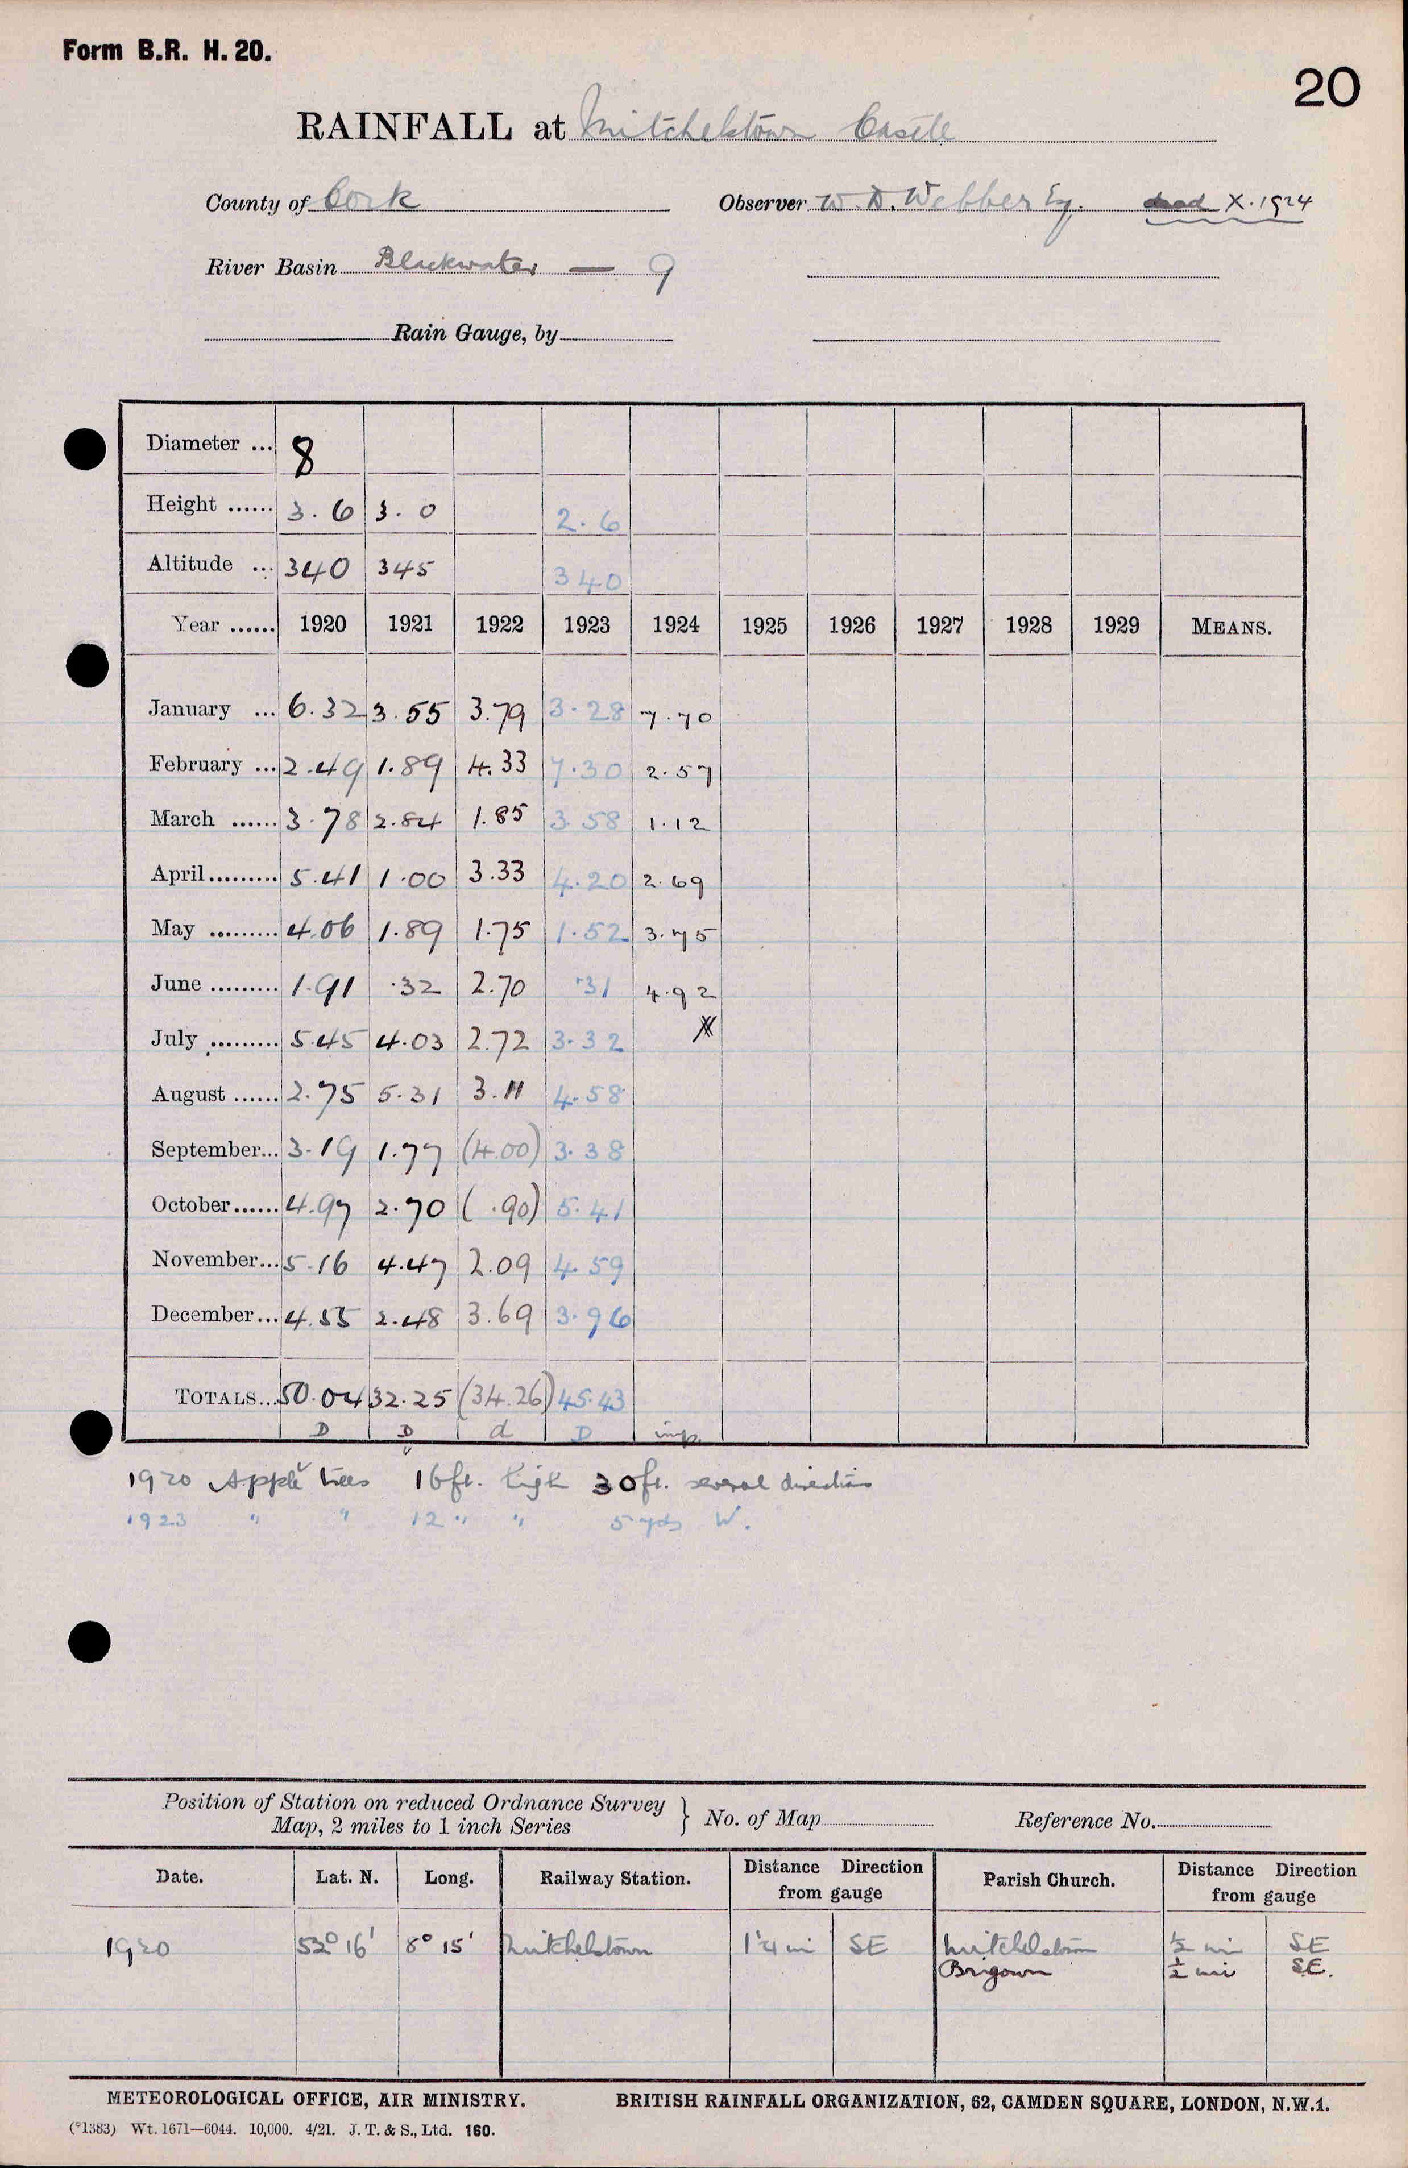 Form B.R. H. 20.
20
RAINFALL at Mitchelstown Castle
County of Cork Observer W. D. Webber Esq. dead X.1924
River Basin Blackwater — 9
Rain Gauge, by
Diameter ... 8
Height ...... 3.6 3.0 2.6
Altitude ... 340 345 340
Year ...... 1920 1921 1922 1923 1924 1925 1926 1927 1928 1929 MEANS.
January ... 6.32 3.55 3.79 3.28 7.70
February ... 2.49 1.89 4.33 7.30 2.57
March ...... 3.78 2.84 1.85 3.58 1.12
April......... 5.41 1.00 3.33 4.20 2.69
May ......... 4.06 1.89 1.75 1.52 3.75
June ......... 1.91 .32 2.70 .31 4.92
July ......... 5.45 4.03 2.72 3.32 X
August ...... 2.75 5.31 3.11 4.58
September... 3.19 1.77 (4.00) 3.38
October...... 4.97 2.70 (.90) 5.41
November... 5.16 4.47 2.09 4.59
December... 4.55 2.48 3.69 3.96
TOTALS... 50.04 32.25 (34.26) 45.43
D D d D imp.
1920 Apple trees 16 ft. high 30 ft. several directions
1923 " " 12 " " 5 yds W.
Position of Station on reduced Ordnance Survey
Map, 2 miles to 1 inch Series } No. of Map Reference No.
Date. Lat. N. Long. Railway Station. Distance Direction from gauge Parish Church. Distance Direction from gauge
1920 52° 16' 8° 15' Mitchelstown 1¼ mi SE Mitchelstown ½ mi SE
Brigown ½ mi SE.
METEOROLOGICAL OFFICE, AIR MINISTRY. BRITISH RAINFALL ORGANIZATION, 62, CAMDEN SQUARE, LONDON, N.W.1.
(*1383) Wt. 1671—6044. 10,000. 4/21. J. T. & S., Ltd. 160.